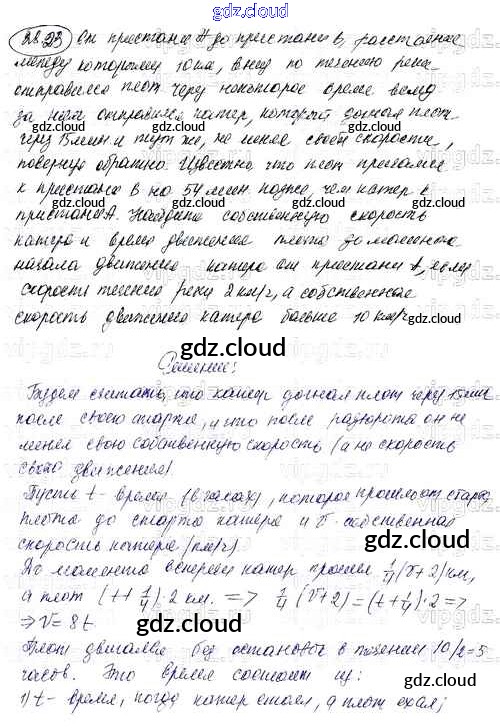 gdz.cloud
28.23 От пристани А до пристани В, расстояние
между которыми 10 км, вниз по течению реки
отправился плот. Через некоторое время вслед
за ним отправился катер, который догнал плот
через 15 мин и тут же, не меняя своей скорости,
повернул обратно. Известно что плот приплыл
к пристани В на 54 мин позже, чем катер к
пристани А. Найдите собственную скорость
катера и время движения плота до момента
начала движения катера от пристани А, если
скорость течения реки 2 км/ч, а собственная
скорость движения катера больше 10 км/ч.
Решение:
Будем считать, что катер догнал плот через 15 мин
после своего старта, и что после разворота он не
менял свою собственную скорость (а не скорость
своего движения)
Пусть t - время (в часах), которое прошло от старта
плота до старта катера и v - собственная
скорость катера (км/ч)
До момента встречи катер прошел 1/4 (v+2) км,
а плот (t + 1/4) · 2 км. => 1/4 (v+2) = (t + 1/4) · 2 =>
=> v = 8t
Плот двигался без остановок в течении 10/2 = 5
часов. Это время состоит из:
1) t - время, когда катер стоял, а плот ехал;
gdz.cloud